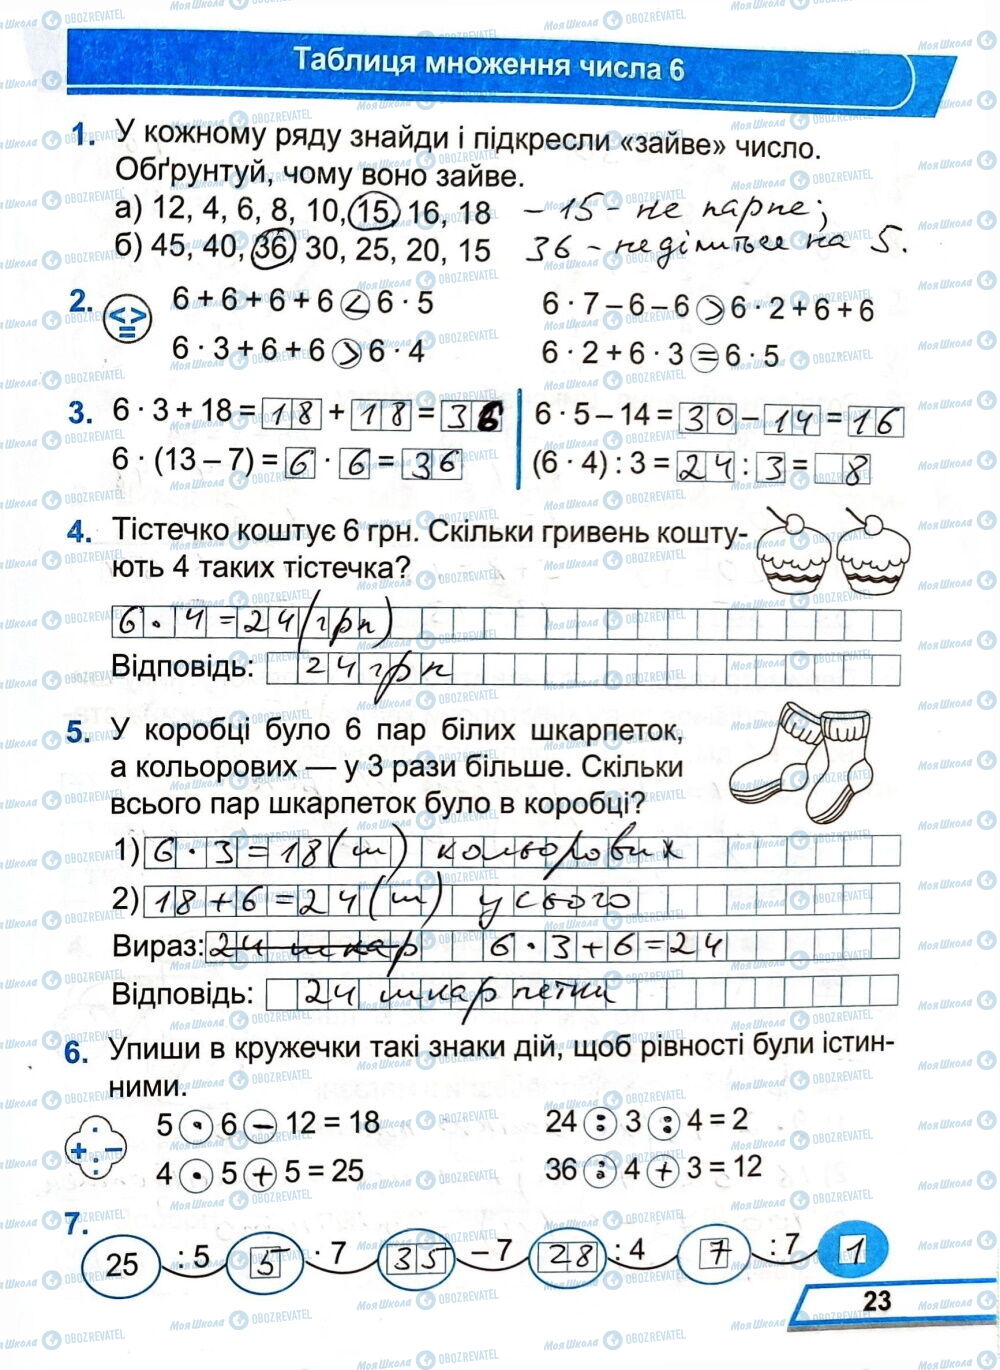 Таблиця множення числа 6
1. У кожному ряду знайди і підкресли «зайве» число.
Обґрунтуй, чому воно зайве.
а) 12, 4, 6, 8, 10, 15, 16, 18 – 15 - не парне;
б) 45, 40, 36, 30, 25, 20, 15 36 - не ділиться на 5.
2. 6 + 6 + 6 + 6 < 6 · 5 6 · 7 – 6 – 6 > 6 · 2 + 6 + 6
< > =
6 · 3 + 6 + 6 > 6 · 4 6 · 2 + 6 · 3 = 6 · 5
3. 6 · 3 + 18 = 18 + 18 = 36 6 · 5 – 14 = 30 – 14 = 16
6 · (13 – 7) = 6 · 6 = 36 (6 · 4) : 3 = 24 : 3 = 8
4. Тістечко коштує 6 грн. Скільки гривень кошту-
ють 4 таких тістечка?
6 · 4 = 24 (грн)
Відповідь: 24 грн
5. У коробці було 6 пар білих шкарпеток,
а кольорових — у 3 рази більше. Скільки
всього пар шкарпеток було в коробці?
1) 6 · 3 = 18 (ш) кольорових
2) 18 + 6 = 24 (ш) усього
Вираз: 24 шкар 6 · 3 + 6 = 24
Відповідь: 24 шкарпетки
6. Упиши в кружечки такі знаки дій, щоб рівності були істин-
ними.
5 · 6 – 12 = 18 24 : 3 : 4 = 2
· + – :
4 · 5 + 5 = 25 36 : 4 + 3 = 12
7.
25 : 5 5 · 7 35 – 7 28 : 4 7 : 7 1
23
МояШкола OBOZREVATEL